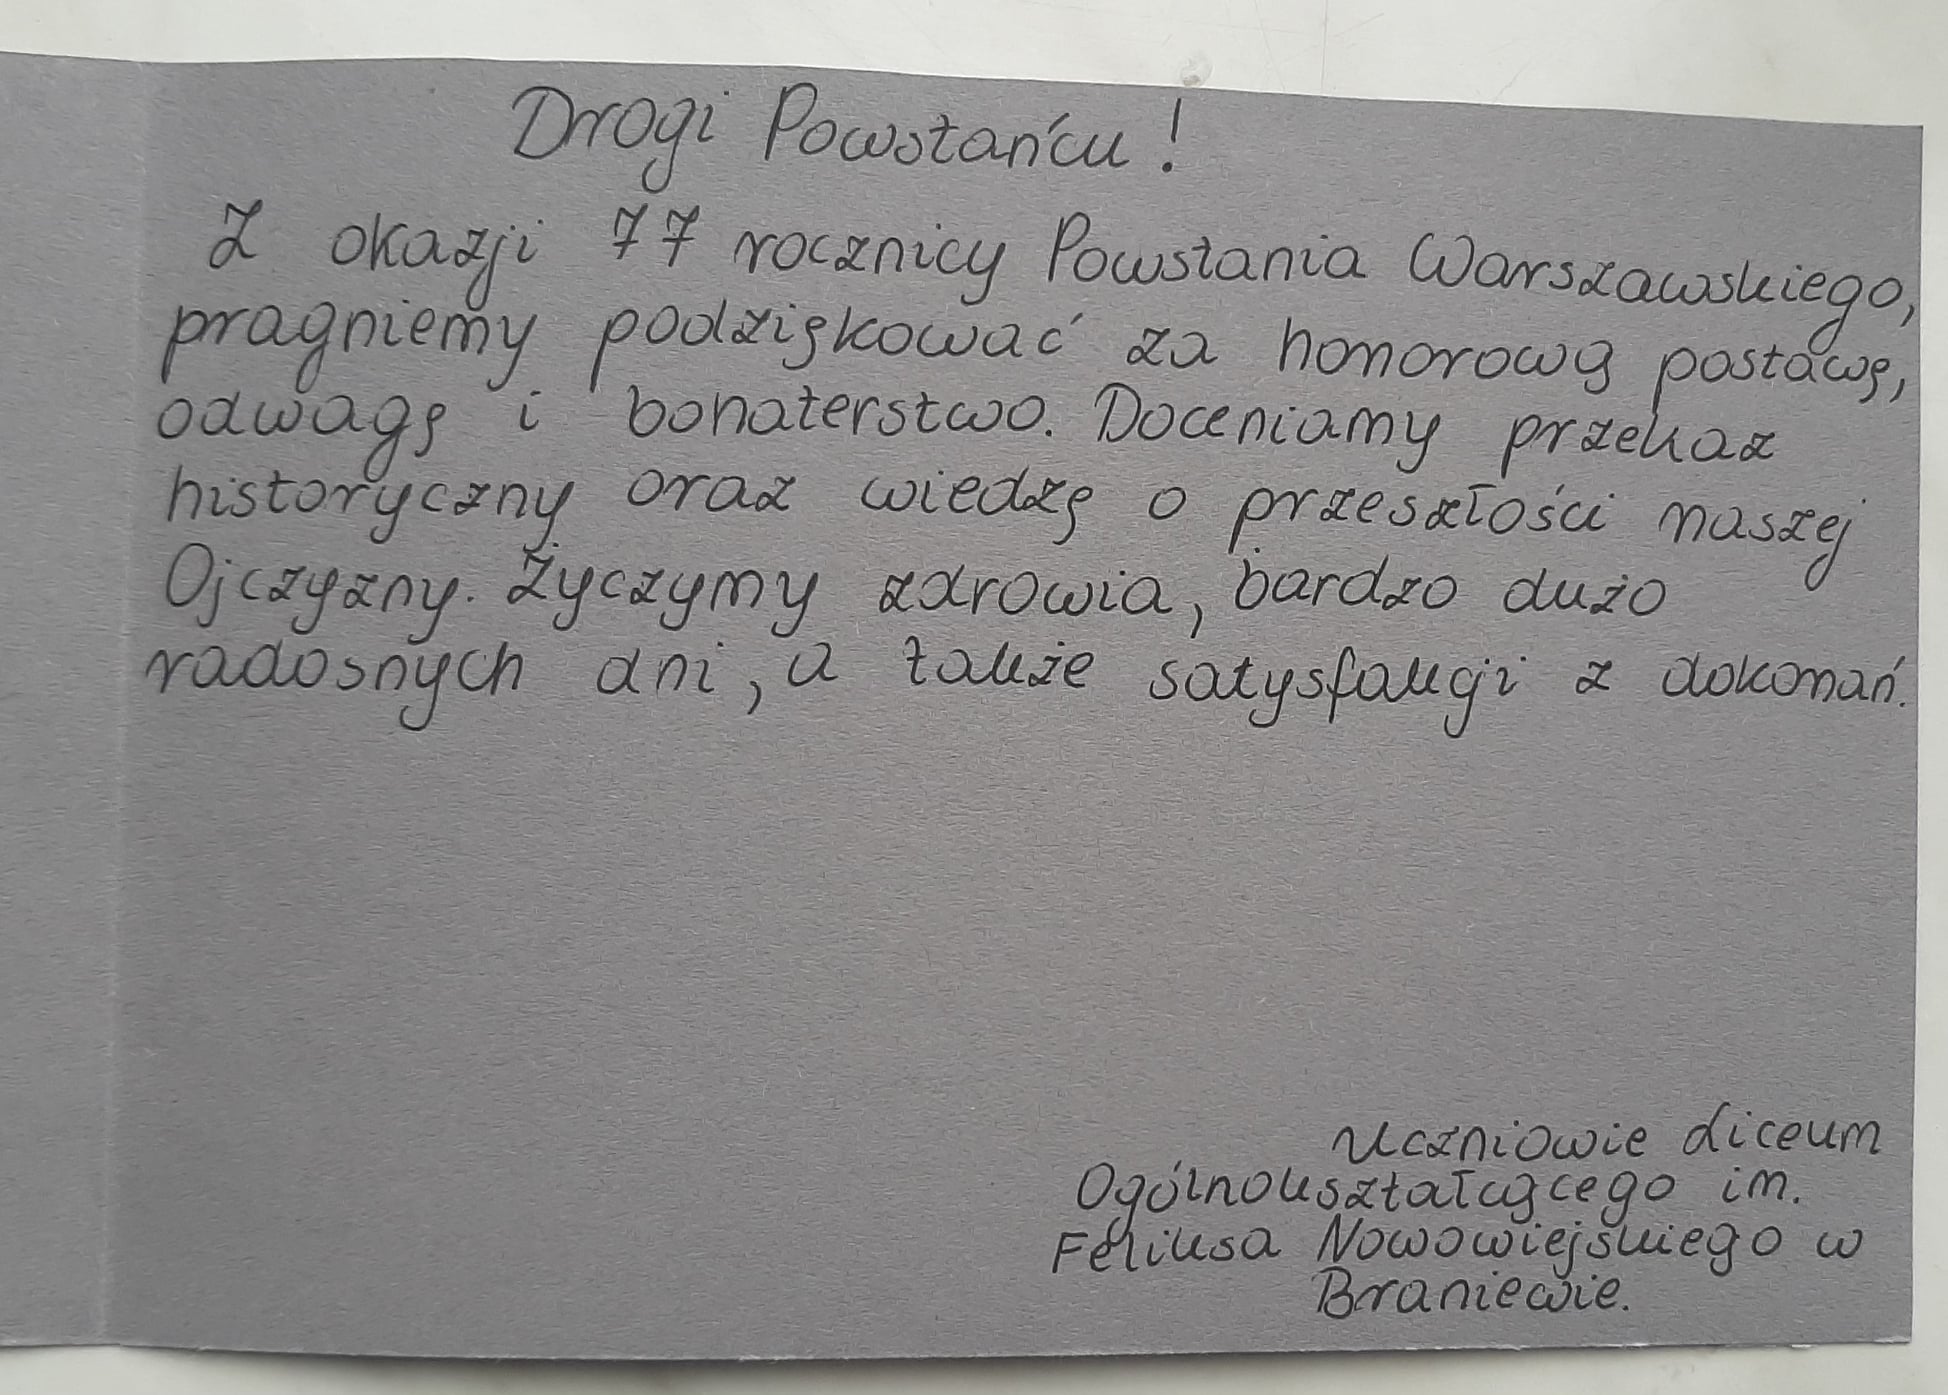 Drogi Powstańcu!
Z okazji 77 rocznicy Powstania Warszawskiego,
pragniemy podziękować za honorową postawę,
odwagę i bohaterstwo. Doceniamy przekaz
historyczny oraz wiedzę o przeszłości naszej
Ojczyzny. Życzymy zdrowia, bardzo dużo
radosnych dni, a także satysfakcji z dokonań.
Uczniowie Liceum
Ogólnokształcącego im.
Feliksa Nowowiejskiego w
Braniewie.